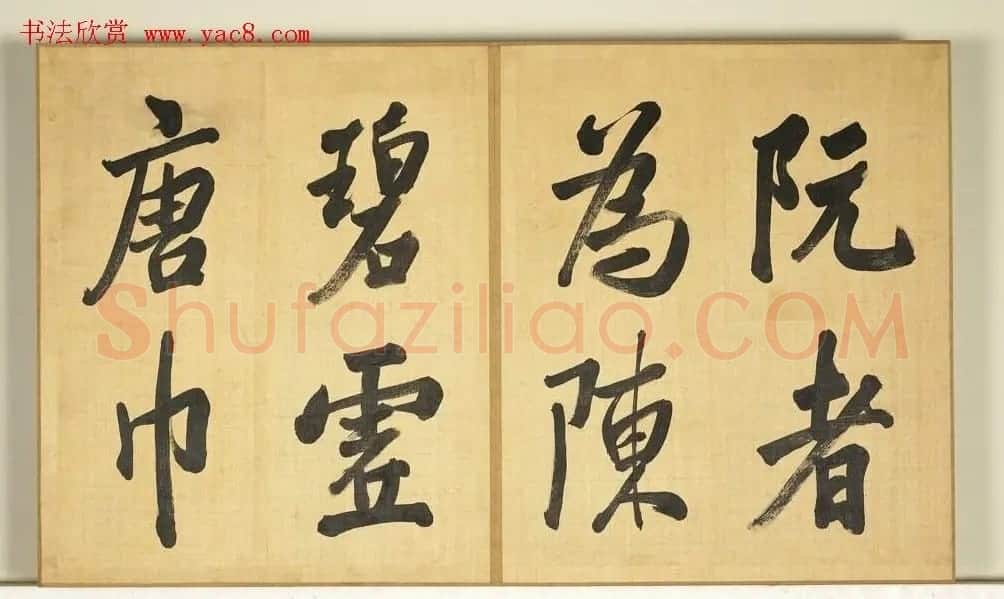 书法欣赏 www.yac8.com
阮者
為陳
碧虛
唐巾
Shufaziliao.COM